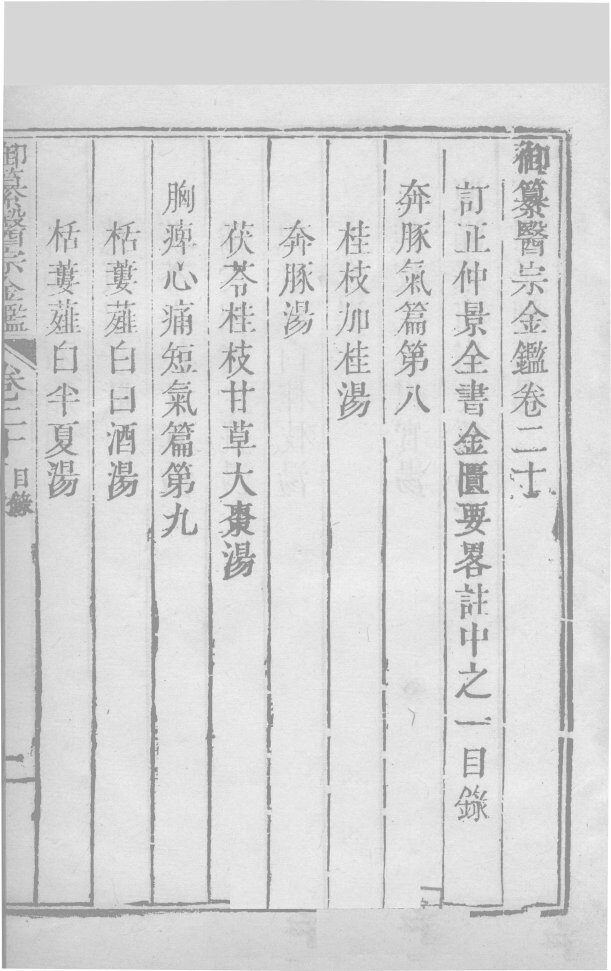 御纂醫宗金鑑卷二十
訂正仲景全書金匱要畧註中之一目錄
奔豚氣篇第八
桂枝加桂湯
奔豚湯
茯苓桂枝甘草大棗湯
胸痺心痛短氣篇第九
栝蔞薤白白酒湯
栝蔞薤白半夏湯
御纂醫宗金鑑 卷二十 目錄 一